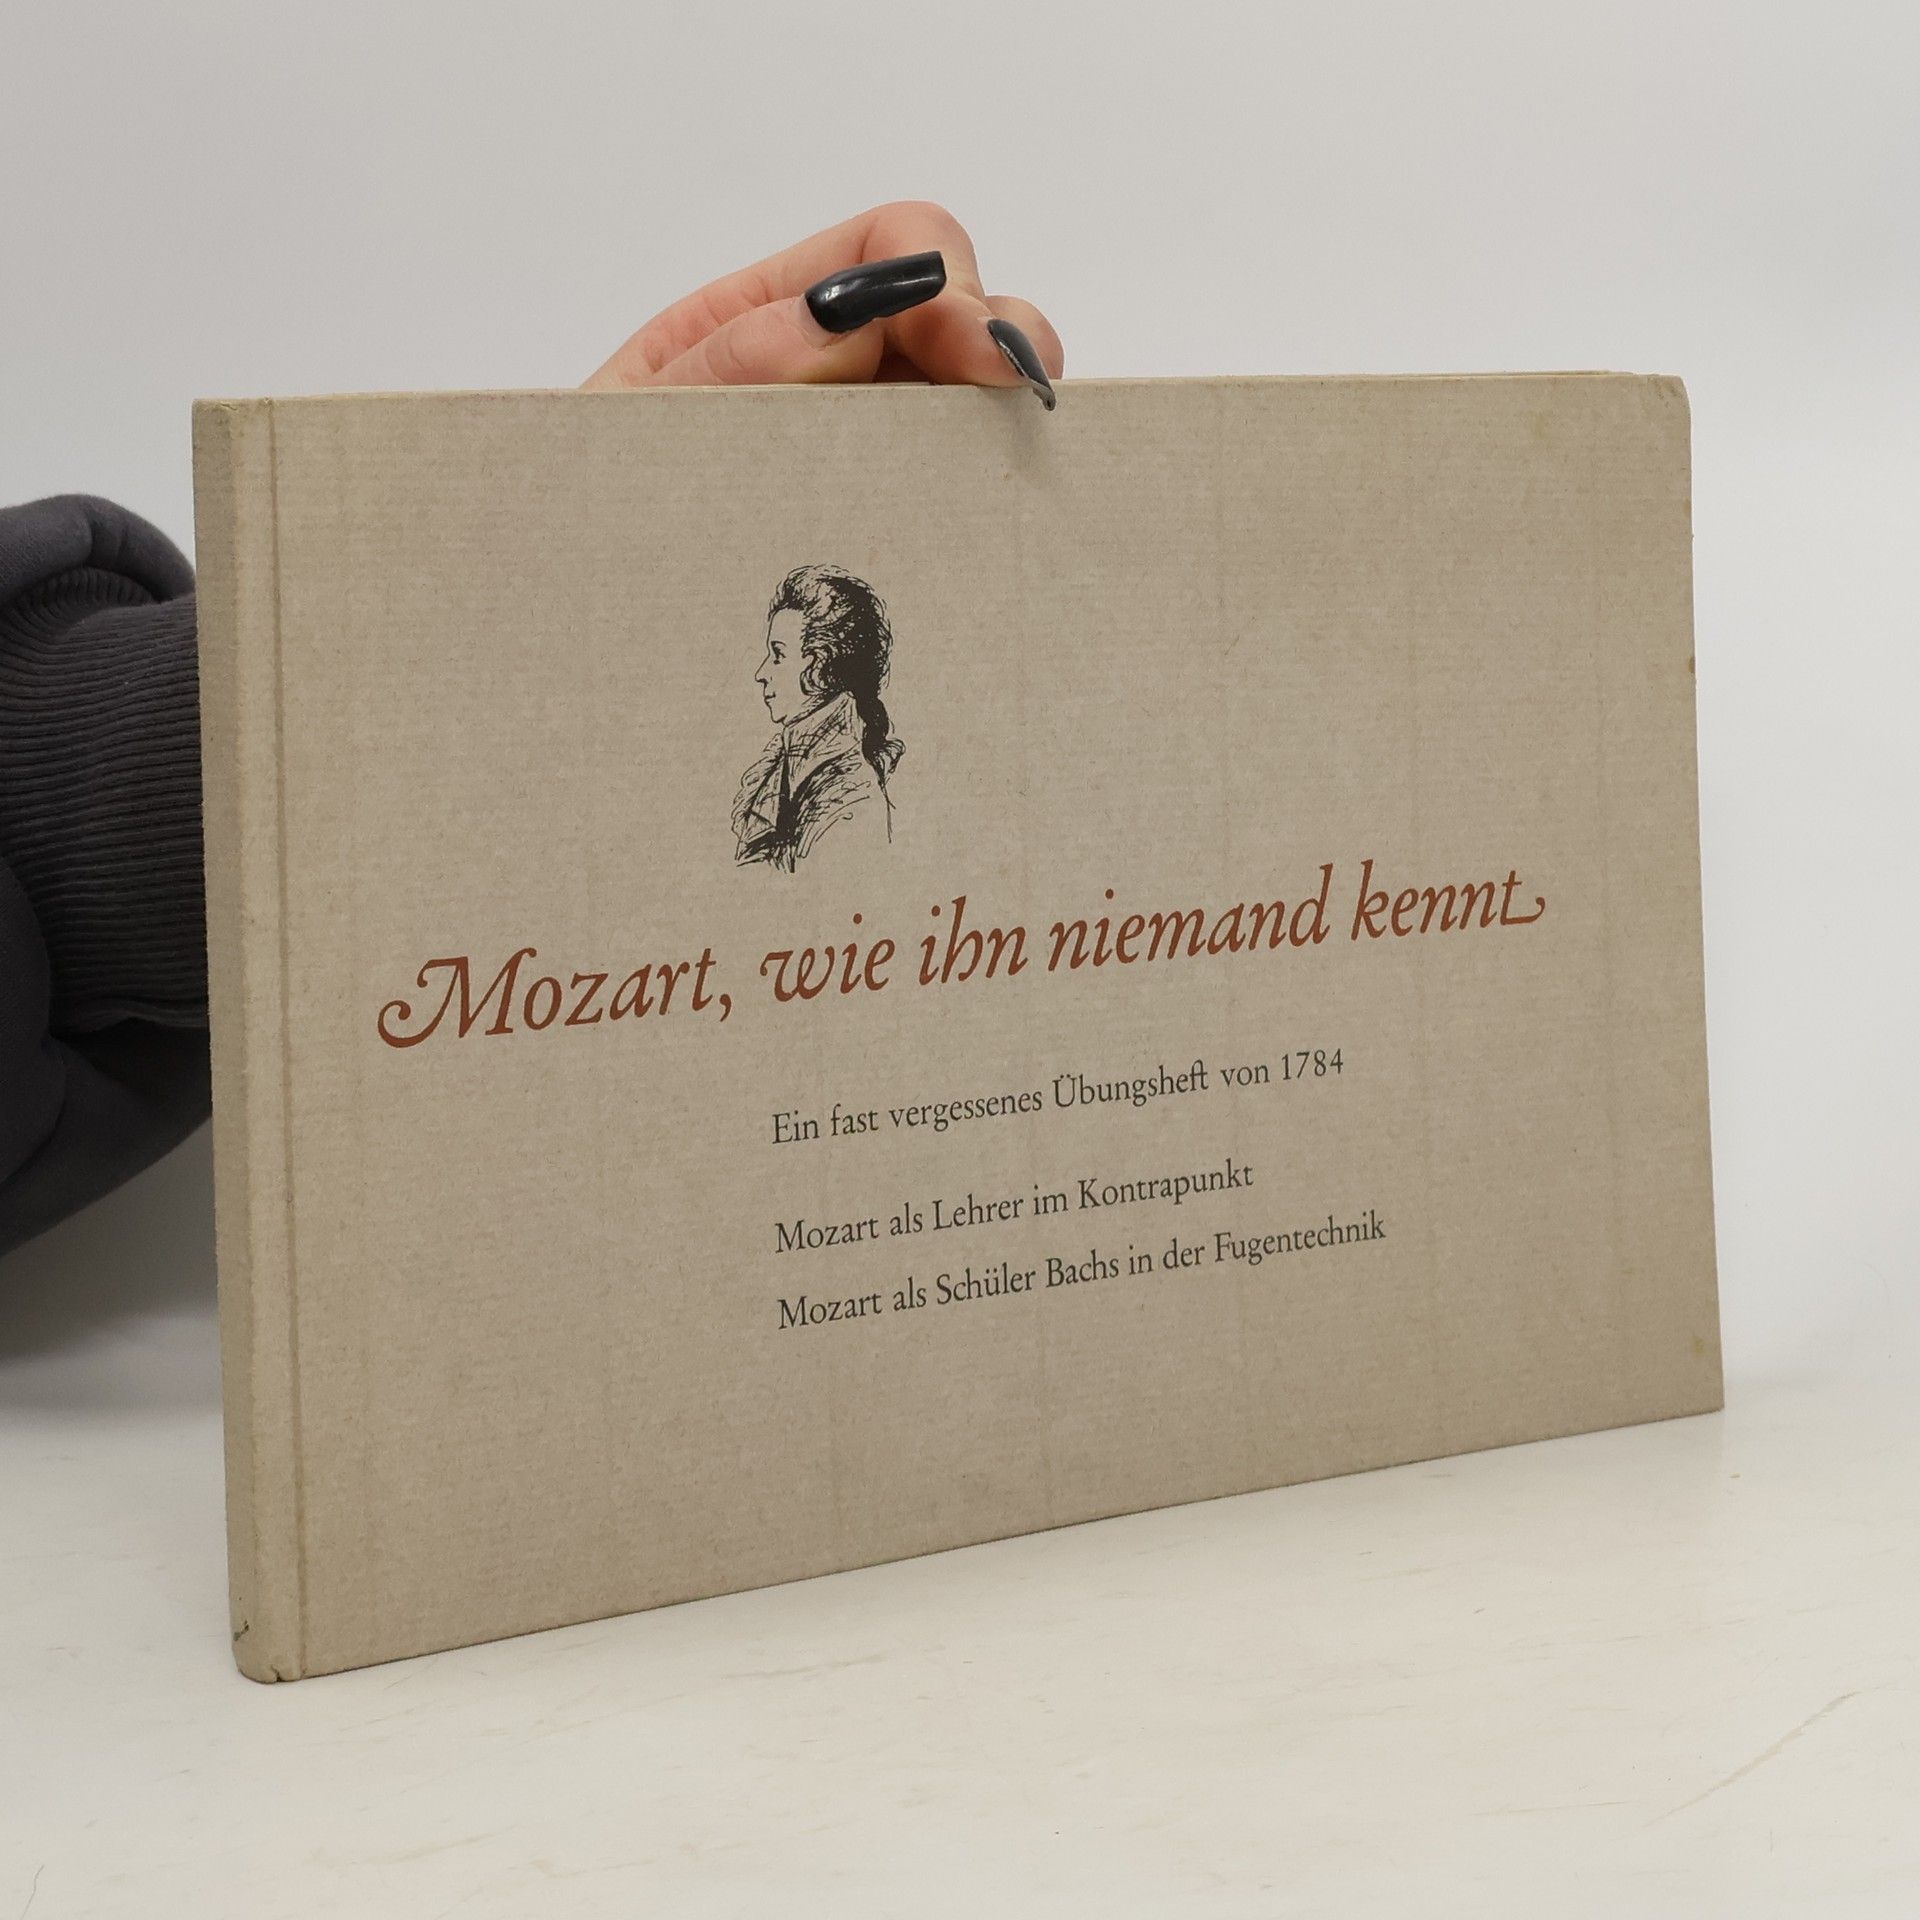 Mozart, wie ihn niemand kennt
Ein fast vergessenes Übungsheft von 1784
Mozart als Lehrer im Kontrapunkt
Mozart als Schüler Bachs in der Fugentechnik